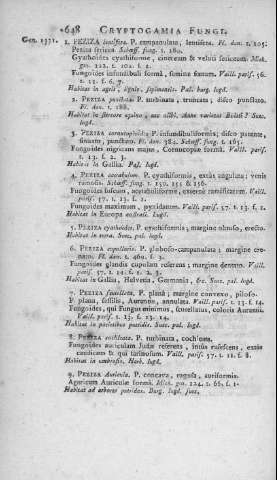 648 CRYPTOGAMIA FUNGI.
Gen. 1371. 1. PEZIZA lentifera. P. campanulata, lentifera. Fl. dan. t. 105.
Peziza sericea Schæff. fung. t. 180.
Cyathoides cyathiforme, cinereum & veluti sericeum. Mich.
gen. 222. t. 102. f. 2.
Fungoides infundibuli forma, semine fœtum. Vaill. parif. 56.
t. 11. f. 6. 7.
Habitat in agris, lignis, sepimentis. Pal. burg. lugd.
2. PEZIZA punctata. P. turbinata, truncata; disco punctato.
Fl. dan. t. 288.
Habitat in stercore equino, aut albi. Anne varietas Boleti? Sunc.
lugd.
3. PEZIZA cornucopioides. P. infundibuliformis; disco patente,
sinuato, punctato. Fl. dan. 384. Schæff. fung. t. 165.
Fungoides nigricans majus, Cornucopiæ forma. Vaill. parif.
t. 13. f. 2. 3.
Habitat in Gallia. Pal. lugd.
4. PEZIZA acetabulum. P. cyathiformis, extus angulata; venis
ramosis. Schæff. fung. t. 150. 155 & 156.
Fungoides fuscum, acetabuliforme, externe ramificatum. Vaill.
parif. 57. t. 13. f. 1.
Fungoides maximum, pyxidatum. Vaill. parif. 57. t. 13. f. 1.
Habitat in Europæ australi. Lugd.
5. PEZIZA cyathoides. P. cyathiformis; margine obtuso, erecto.
Habitat in terra. Sunc. pal. lugd.
6. PEZIZA cupularis. P. globoso-campanulata; margine cre-
nato. Fl. dan. t. 469. f. 3.
Fungoides glandis cupulam referens; margine dentato. Vaill.
parif. 57. t. 11. f. 1. 2. 3.
Habitat in Gallia, Helvetia, Germania, &c. Sunc. pal. lugd.
7. PEZIZA scutellata. P. plana; margine convexo, piloso.
P. plana, sessilis, Aurorae, annulata. Vaill. parif. t. 13. f. 14.
Fungoides, qui Fungus minimus, scutellatus, coloris Aurantii.
Vaill. parif. t. 13. f. 13. 14.
Habitat in parietibus putridis. Sunc. pal. lugd.
8. PEZIZA cochleata. P. turbinata, cochleata.
Fungoides auriculam Judæ referens, intus rufescens, extus
candicans & qui farinosum. Vaill. parif. 57. t. 11. f. 8.
Habitat in umbrosis. Herb. lugd.
9. PEZIZA Auricula. P. concava, rugosa, auriformis.
Agaricum Auriculæ forma. Mich. gen. 124. t. 66. f. 1.
Habitat ad arbores putridas. Burg. lugd. sunc.